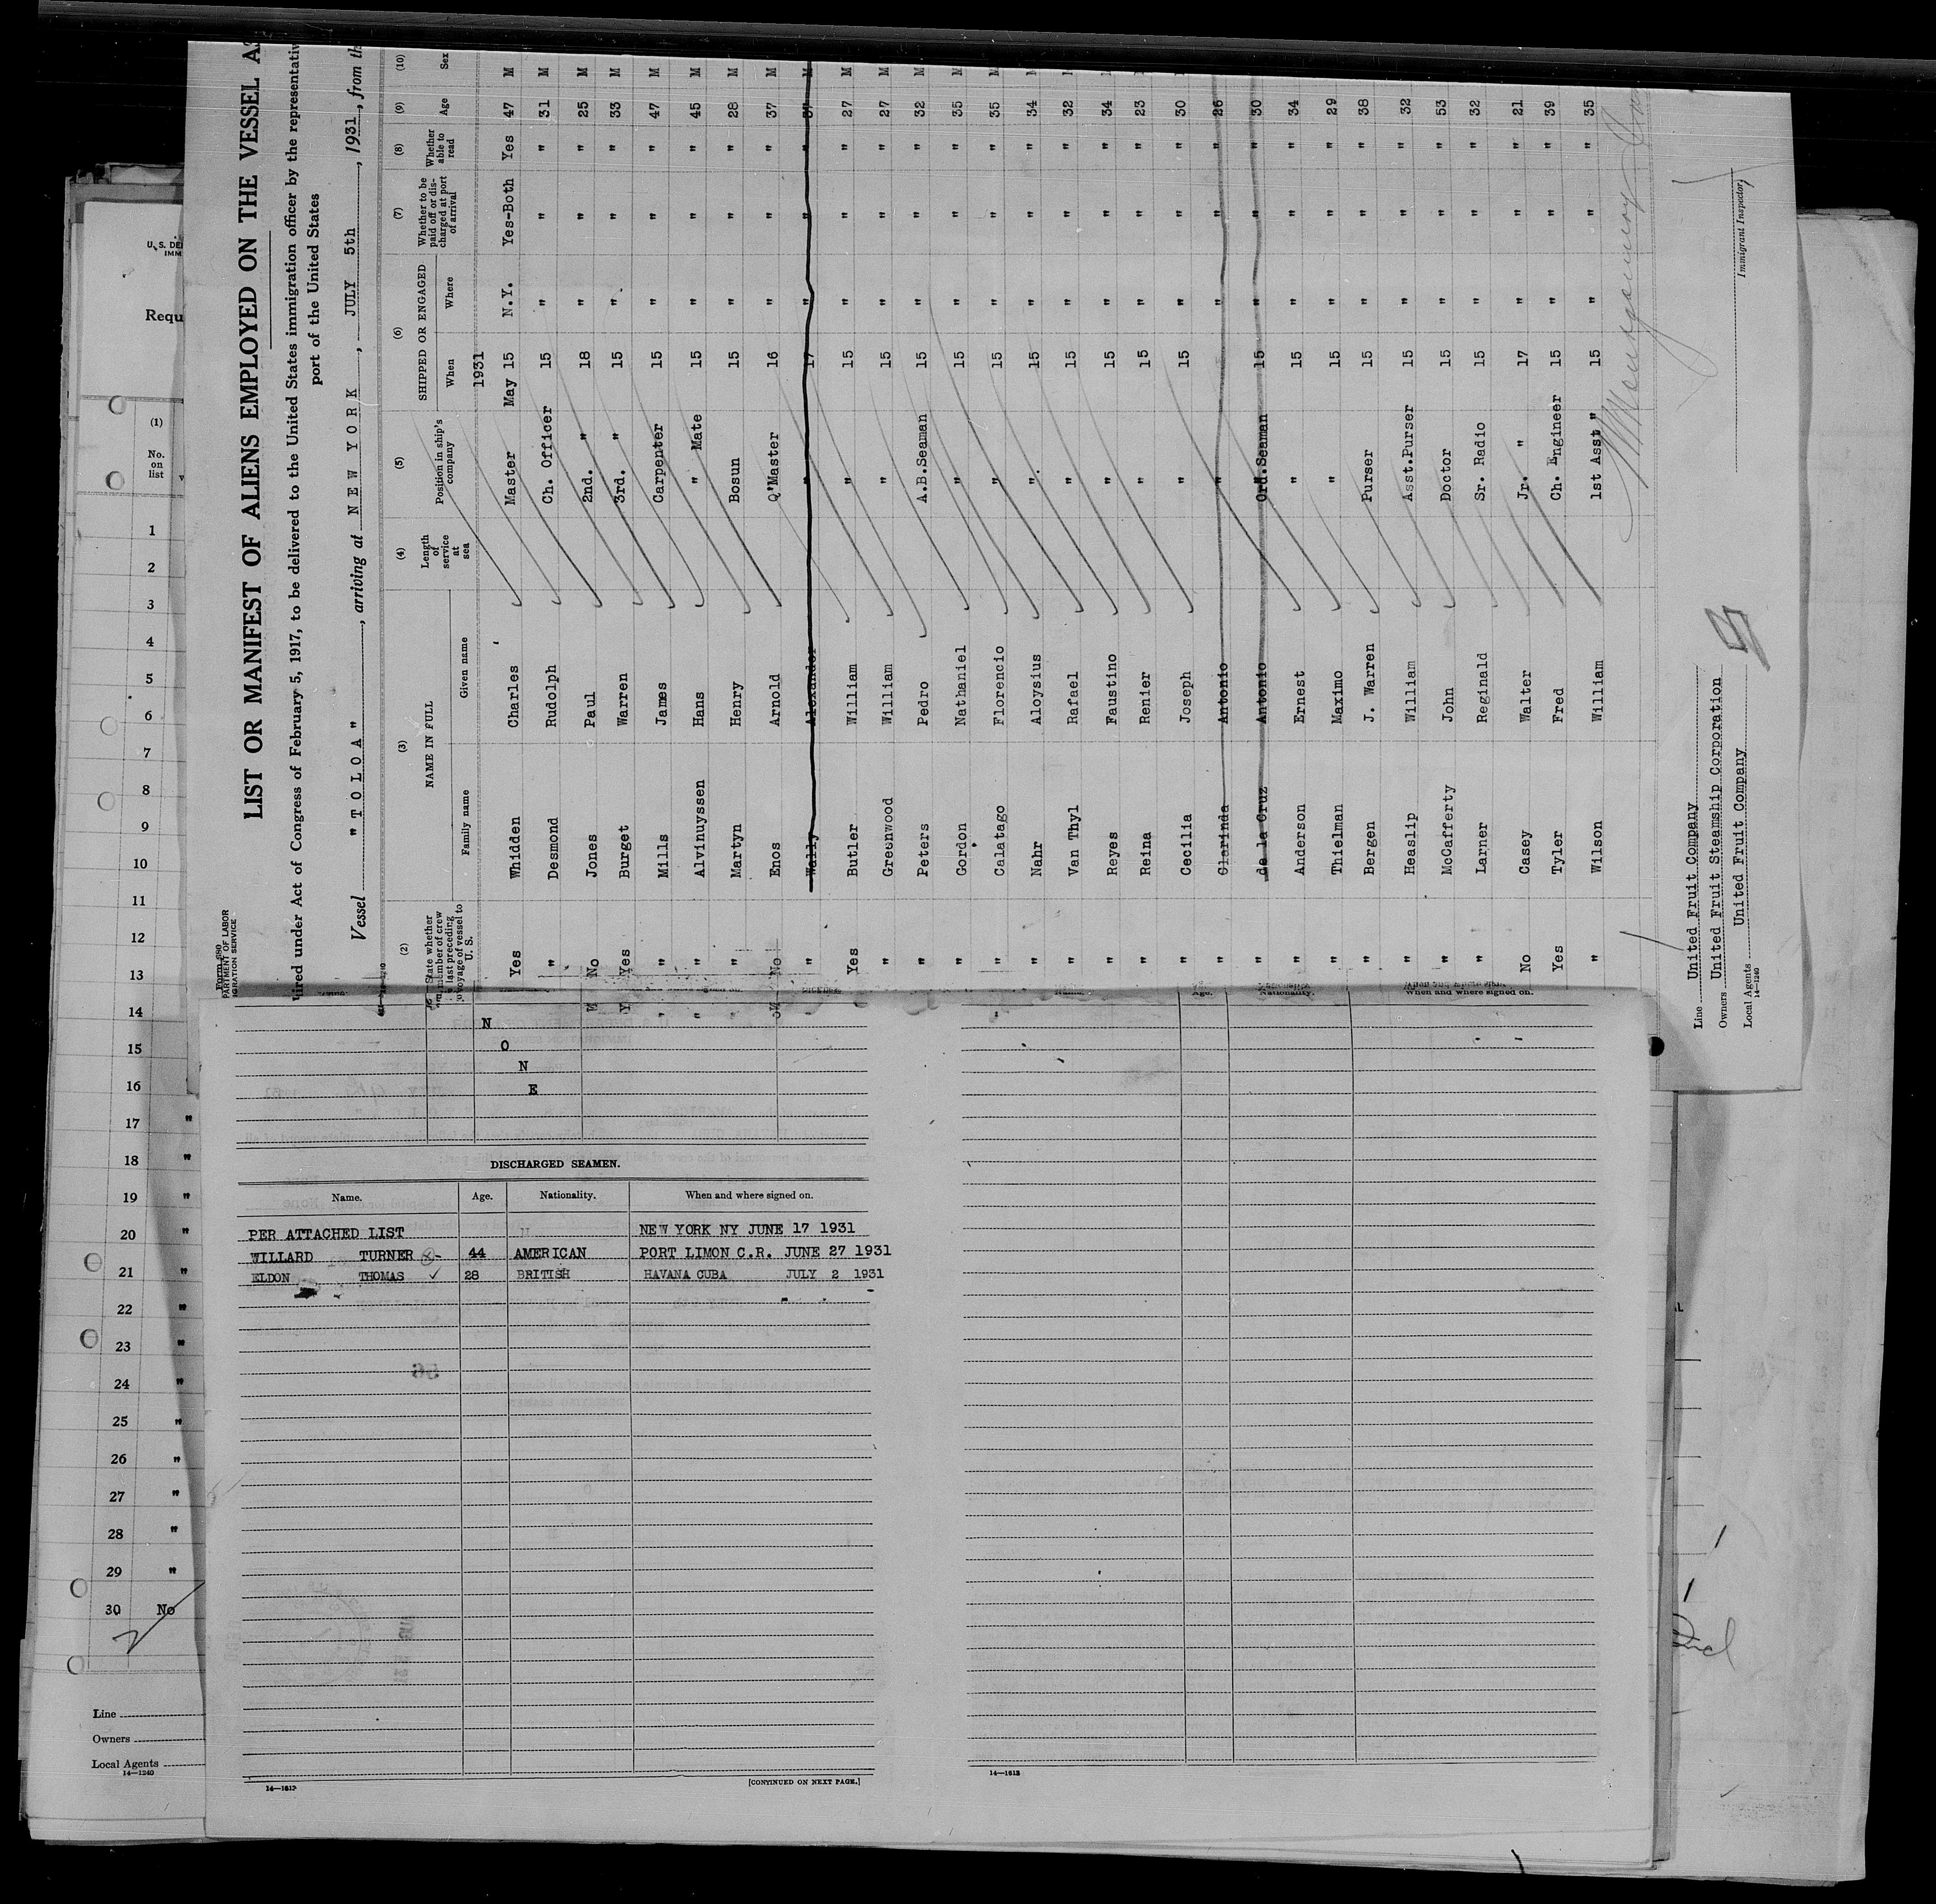 Form 680
LIST OR MANIFEST OF ALIENS EMPLOYED ON THE VESSEL AS
uired under Act of Congress of February 5, 1917, to be delivered to the United States immigration officer by the representativ
port of the United States
Vessel "TOLOA", arriving at NEW YORK, JULY 5th, 1931, from th
(2) (3) (4) (5) (6) (7) (8) (9) (10)
State whether member of crew last preceding voyage of vessel to U. S. NAME IN FULL Family name Given name Length of service at sea Position in ship's company SHIPPED OR ENGAGED When Where Whether to be paid off or discharged at port of arrival Whether able to read Age Sex
1931
Yes Whidden Charles Master May 15 N.Y. Yes-Both Yes 47 M
" Desmond Rudolph Ch. Officer 15 " " " 31 M
No Jones Paul 2nd. " 18 " " " 25 M
Yes Burget Warren 3rd. " 15 " " " 33 M
" Mills James Carpenter 15 " " " 47 M
" Alvinuyssen Hans " Mate 15 " " " 45 M
" Martyn Henry Bosun 15 " " " 28 M
No Enos Arnold Q'Master 16 " " " 37 M
" Wally Alexander " 17 " " " 37 M
Yes Butler William " 15 " " " 27 M
" Greenwood William " 15 " " " 27 M
" Peters Pedro A.B.Seaman 15 " " " 32 M
" Gordon Nathaniel " 15 " " " 35 M
" Calatago Florencio " 15 " " " 35 M
" Nahr Aloysius " 15 " " " 34
" Van Thyl Rafael " 15 " " " 32
" Reyes Faustino " 15 " " " 34
" Reina Renier " 15 " " " 23
" Cecilia Joseph " 15 " " " 30
" Clarinda Antonio " " " " 26
" de la Cruz Antonio Ord.Seaman 15 " " " 30
" Anderson Ernest " 15 " " " 34
" Thielman Maximo " 15 " " " 29
" Bergen J. Warren Purser 15 " " " 38
" Heaslip William Asst.Purser 15 " " " 32
" McCafferty John Doctor 15 " " " 53
" Larner Reginald Sr. Radio 15 " " " 32
No Casey Walter Jr. " 17 " " " 21
Yes Tyler Fred Ch. Engineer 15 " " " 39
" Wilson William 1st Asst " 15 " " " 35
Line United Fruit Company
Owners United Fruit Steamship Corporation
Local Agents United Fruit Company
14—1240
Immigrant Inspector
U. S. DE
IMM
Requ
(1)
No. on list
1
2
3
4
5
6
7
8
9
10
11
12
13
14
15
16
17 "
18 "
19 "
20 "
21 "
22 "
23 "
24 "
25 "
26 "
27 "
28 "
29 "
30 No
Line
Owners
Local Agents
14—1240
N
O
N
E
DISCHARGED SEAMEN.
Name. Age. Nationality. When and where signed on.
PER ATTACHED LIST NEW YORK NY JUNE 17 1931
WILLARD TURNER 44 AMERICAN PORT LIMON C.R. JUNE 27 1931
ELDON THOMAS 28 BRITISH HAVANA CUBA JULY 2 1931
14—1613
[CONTINUED ON NEXT PAGE.]
Age. Nationality. When and where signed on.
14—1613